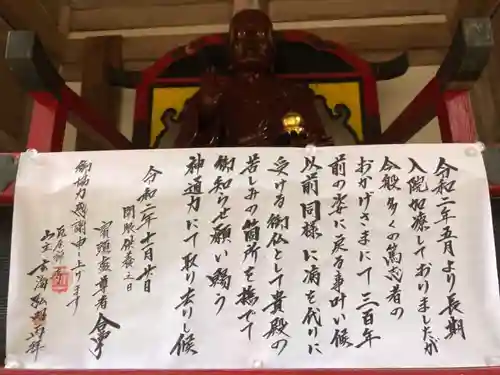 令和二年五月より長期
入院加療しておりましたが
今般多くの篤志者の
おかげさまにて三百年
前の姿に戻る事叶い候
以前同様に病を代りに
受ける御仏として貴殿の
苦しみの箇所を撫でて
御知らせ願い賜う
神通力にて取り去りし候
令和二年十一月廿日
開眼供養之日
賓頭盧尊者 合掌
御協力感謝申し上げます